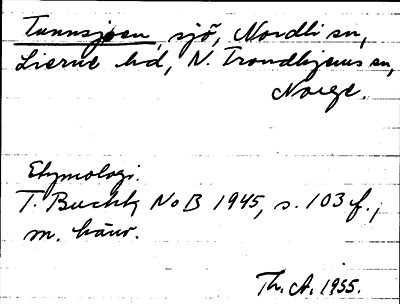 Tunnsjøen, sjö, Nordli sn,
Lierne hd, N. Trondhjems sn,
Norge.
Etymologi.
T. Buckh NoB 1945, s. 103 f.,
m. hänv.
Th. A. 1955.